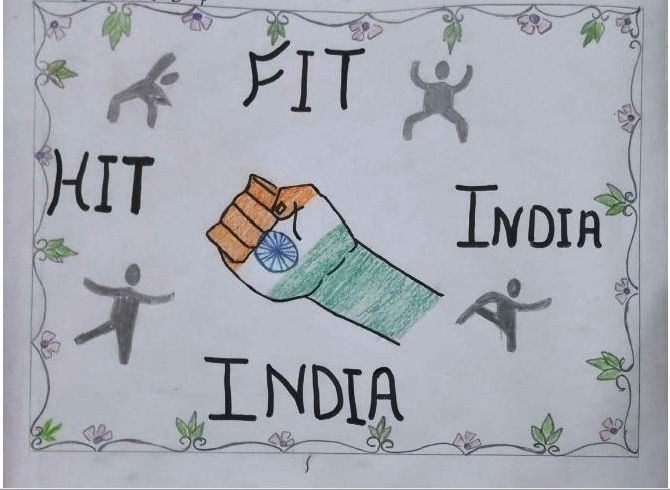 FIT
HIT
INDIA
INDIA